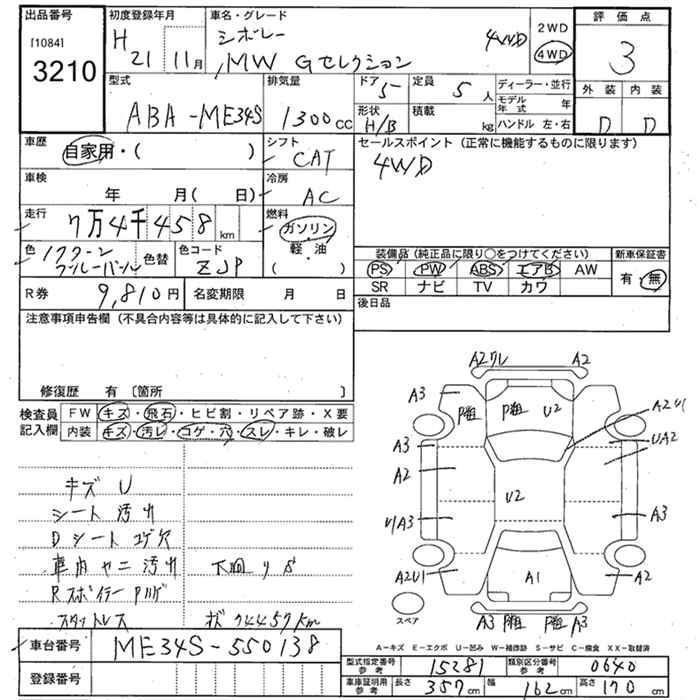 出品番号
[1084]
3210
初度登録年月
H 21 11月
車名・グレード
シボレー
MW Gセレクション
4WD
2WD
4WD
評価点
3
外装 内装
D D
型式
ABA-ME34S
排気量
1300cc
ドア 5 定員 5人
形状 H/B 積載 kg
ディーラー・並行
モデル年式 年
ハンドル 左・右
車歴
自家用・( )
シフト
CAT
セールスポイント (正常に機能するものに限ります)
4WD
車検
年 月( 日)
冷房
AC
走行
7万4千458km
燃料
ガソリン
軽・油
( )
色
色替
色コード
ZJP
装備品 (純正品に限り○をつけてください)
PS PW ABS エアB AW
SR ナビ TV カワ
新車保証書
有・無
R券 9,810円 名変期限 月 日
後日品
注意事項申告欄 (不具合内容等は具体的に記入して下さい)
修復歴 有 〔箇所 〕
検査員記入欄
FW キズ・飛石・ヒビ割・リペア跡・X要
内装 キズ・汚レ・コゲ・穴・スレ・キレ・破レ
キズ U
シート 汚レ
D シート コゲ穴
車内 ヤニ 汚レ 下廻りS
R スポイラー Pハゲ
スタットレス
74457km
A2ワレ A2
A3 P粗 P粗 U2 A2U1
A3 UA2
A2 U2
U1A3 A3
A2U1 A1 A2
スペア
A3 P粗 P粗 A3
A-キズ E-エクボ U-凹み W-補修跡 S-サビ C-腐食 XX-取替済
車台番号 ME34S-550138
登録番号
型式指定番号 参考 15281 類別区分番号 参考 0640
車庫証明用 参考 長さ 357cm 幅 162cm 高さ 170cm